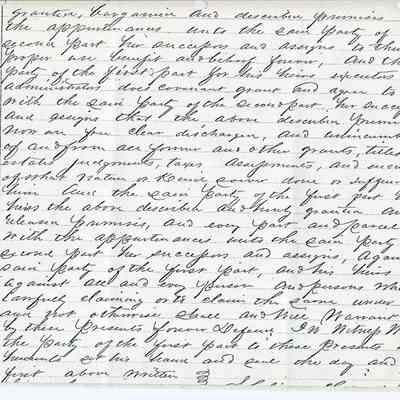 granted, bargained and described premises
the appurtenances unto the said party of
second part her successors and assigns to their
proper use benefit and behoof forever, And the
party of the first part for his heirs executors
administrators does covenant grant and agree to
with the said party of the second part, her succes
and assigns that the above described premis
now are free clear discharged, and unincumber
of and from all former and other grants, titles
estates judgments, taxes assessments, and incum
of what nature or kind soever done or suffere
him And the said party of the first part
heirs the above described and hereby granted and
released premises, and every part and parcel
with the appurtenances unto the said party
second part her successors and assigns, against
said party of the first part, and his heirs
against all and every person and persons who
lawfully claiming or to claim the same under
and not otherwise shall and will Warrant
by these Presents forever Defend, In Witness W
the party of the first part to these presents
hereunto set his hand and seal the day and
first above written